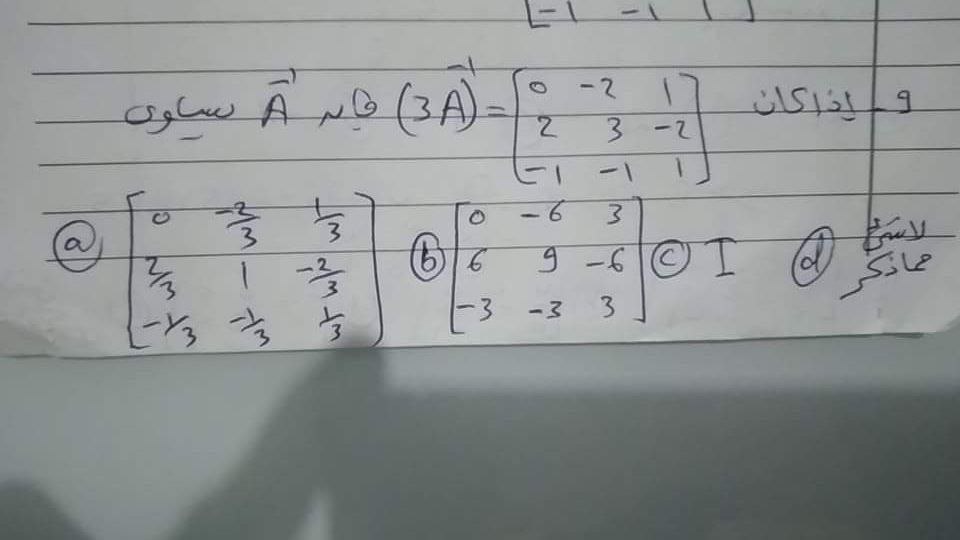 [-1 -1 1]
9- إذا كان (3A)⁻¹ = [0 -2 1; 2 3 -2; -1 -1 1] فإن A⁻¹ يساوي
ⓐ [0 -2/3 1/3; 2/3 1 -2/3; -1/3 -1/3 1/3] ⓑ [0 -6 3; 6 9 -6; -3 -3 3] ⓒ I ⓓ لا شيء مما ذكر